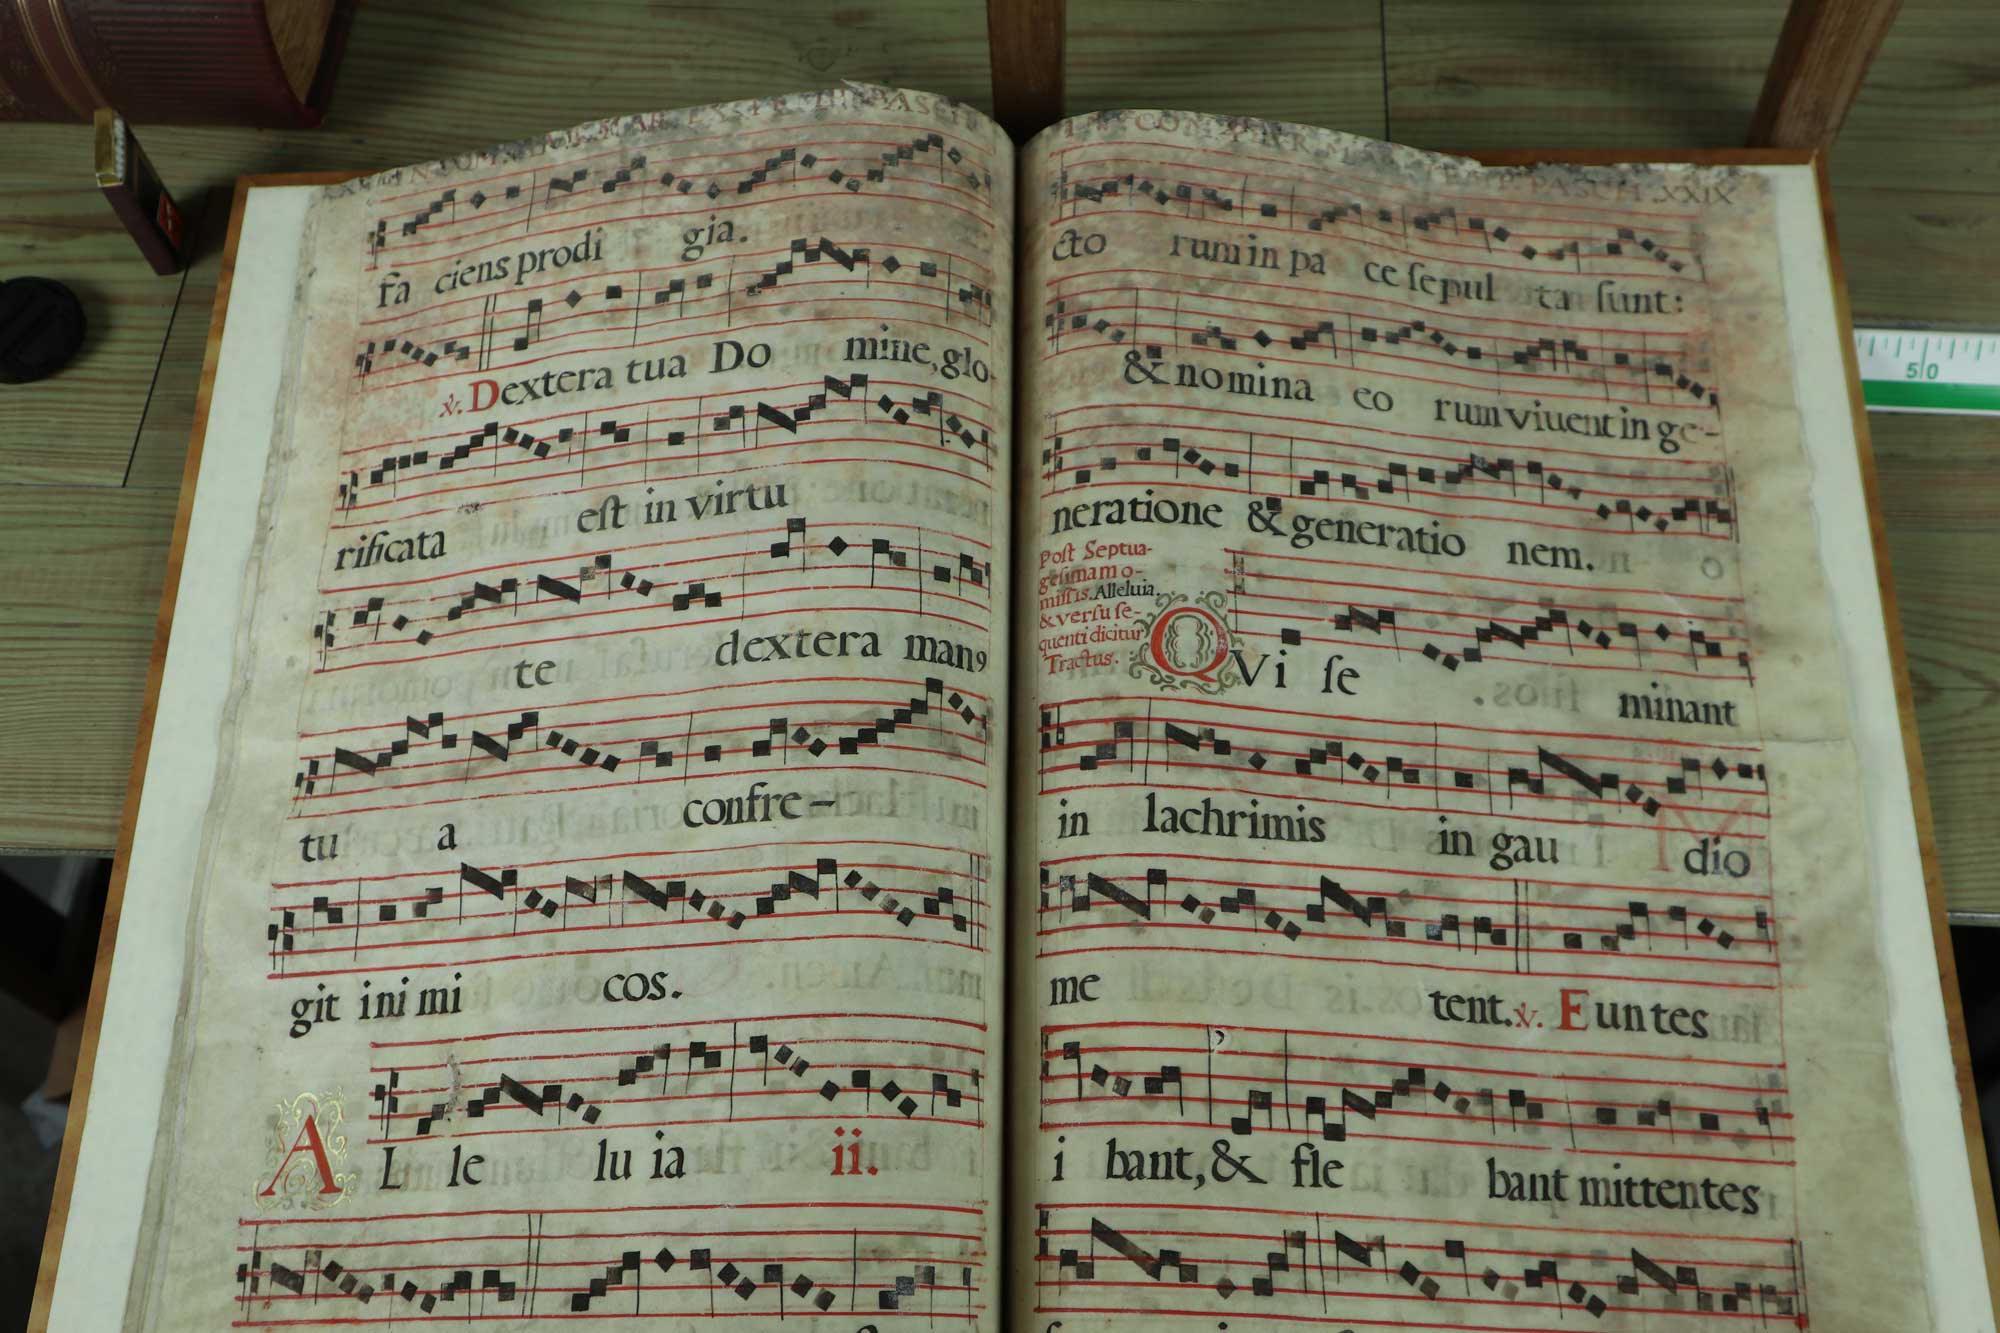 fa ciens prodi gia.
℣. Dextera tua Do mine, glo-
rificata est in virtu
te dextera man9
tu a confre-
git ini mi cos.
AL le lu ia ii.
PASCH. XXIX
cto rum in pa ce ſepul ta ſunt:
& nomina eo rum viuent in ge-
neratione & generatio nem.
Post Septua-
gesimam o-
missis. Alleluia.
& versu se-
quenti dicitur
Tractus.
QVi ſe minant
in lachrimis in gau dio
me tent. ℣. Euntes
i bant, & fle bant mittentes
50